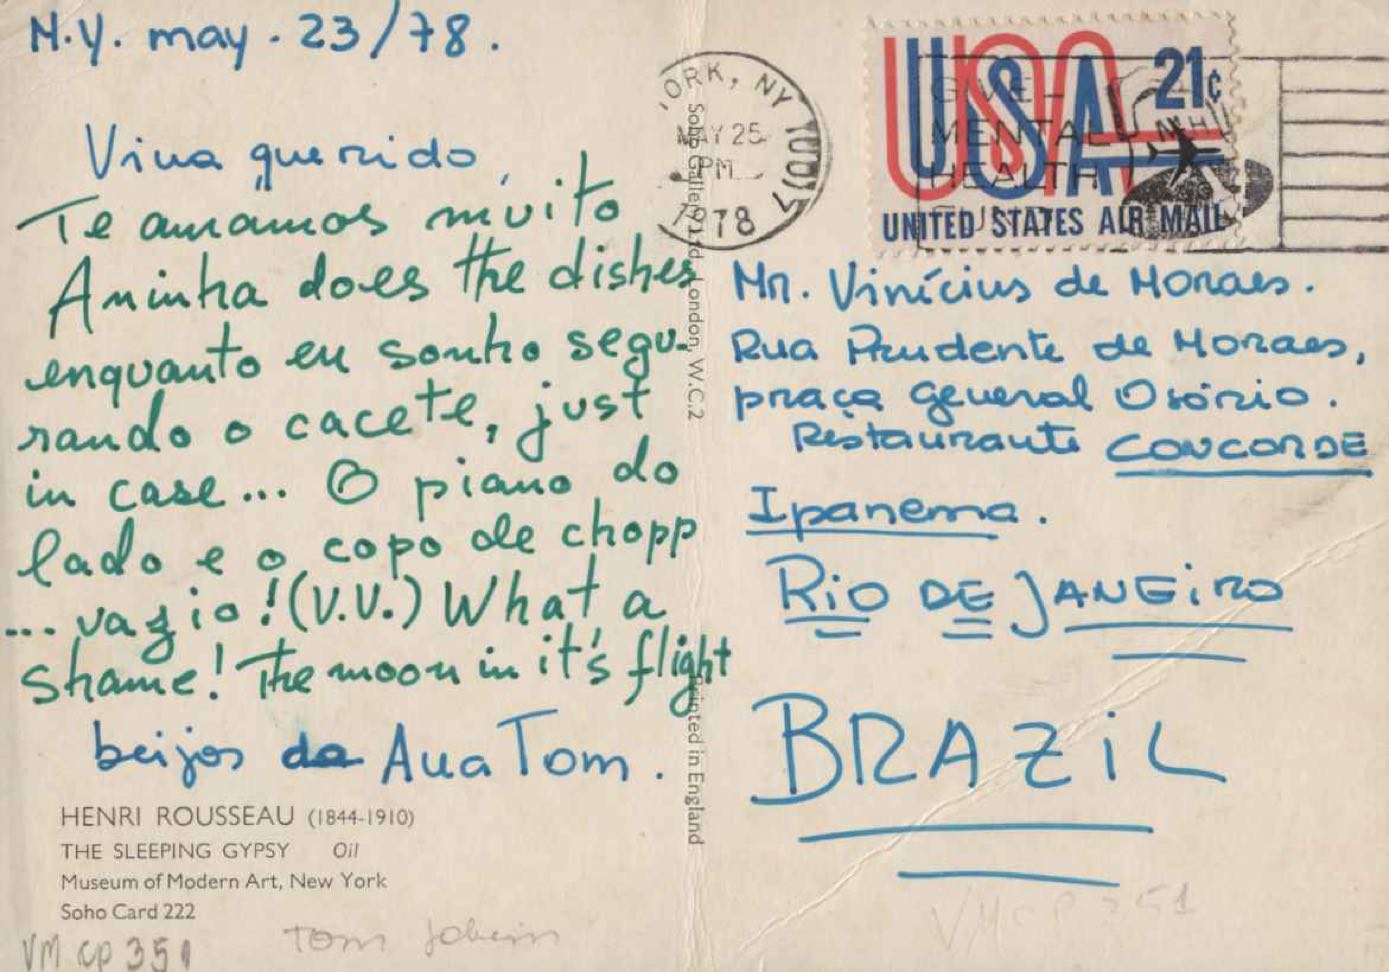 N.Y. may. 23/78.
Viva querido,
Te amamos muito
Aninha does the dishes
enquanto eu sonho segu-
rando o cacete, just
in case... O piano do
lado e o copo de chopp
... vazio! (V.V.) What a
shame! The moon in it's flight
beijos da Ana Tom.
HENRI ROUSSEAU (1844-1910)
THE SLEEPING GYPSY Oil
Museum of Modern Art, New York
Soho Card 222
VM cp 351
Tom Jobim
Soho Gallery Ltd. London, W.C.2
Printed in England
ORK, NY 100
MAY 25
PM
1978
USA 21c
UNITED STATES AIR MAIL
GIVE-
MENTAL
HEALTH
Mr. Vinícius de Moraes.
Rua Prudente de Moraes,
praça general Osório.
Restaurante CONCORDE
Ipanema.
RiO DE JANEiRO
BRAZiL
VM CP 351